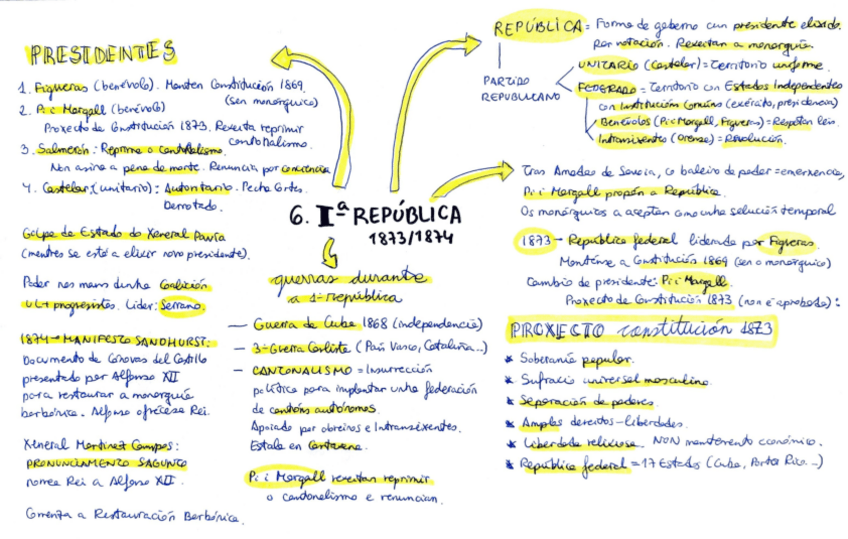 PRESIDENTES
1. Figueras (benévolo). Manten Constitución 1869.
(sen monárquico)
2. Pi i Margall (benévolo)
Proxecto de Constitución 1873. Rexeita reprimir
cantonalismo.
3. Salmerón: Reprime o cantonalismo.
Non asina a pena de morte. Renuncia por conciencia
4. Castelar (unitario): Autoritario. Pecha Cortes.
Derrotado.
Golpe de Estado do Xeneral Pavía
(mentres se está a elixir novo presidente).
Poder nas mans dunha Coalición
UL + progresistas. Líder: Serrano.
1874 → MANIFESTO SANDHURST:
Documento de Cánovas del Castillo
presentado por Alfonso XII
para restaurar a monarquía
borbónica. Alfonso ofrécese Rei.
Xeneral Martínez Campos:
PRONUNCIAMENTO SAGUNTO
nomea Rei a Alfonso XII.
Comenza a Restauración Borbónica.
6. Iª REPÚBLICA
1873/1874
guerras durante
a 1ª república
— Guerra de Cuba 1868 (independencia)
— 3ª Guerra Carlista (País Vasco, Cataluña...)
— CANTONALISMO = Insurrección
política para implantar unha federación
de cantóns autónomos.
Apoiado por obreiros e Intransixentes.
Estala en Cartaxena.
Pi i Margall rexeitan reprimir
o cantonalismo e renuncian.
REPÚBLICA = Forma de goberno cun presidente elixido.
Por votación. Rexeitan a monarquía.
PARTIDO
REPUBLICANO
UNITARIO (Castelar) = Territorio uniforme.
FEDERADO = Territorio con Estados Independentes
con Institucións Comúns (exército, presidencia)
Benévolos (Pi i Margall, Figueras) = Respetan leis.
Intransixentes (Orense) = Revolución.
Tras Amadeo de Savoia, o baleiro de poder = emerxencia,
Pi i Margall propón a República.
Os monárquicos a aceptan como unha solución temporal
1873 — República federal liderada por Figueras.
Mantense a Constitución 1869 (sen o monárquico)
Cambio de presidente: Pi i Margall.
Proxecto de Constitución 1873 (non é aprobada):
PROXECTO constitución 1873
* Soberanía popular.
* Sufraxio universal masculino.
* Separación de poderes.
* Amplos dereitos-liberdades.
* Liberdade relixiosa. NON mantemento económico.
* República federal = 17 Estados (Cuba, Porto Rico...)